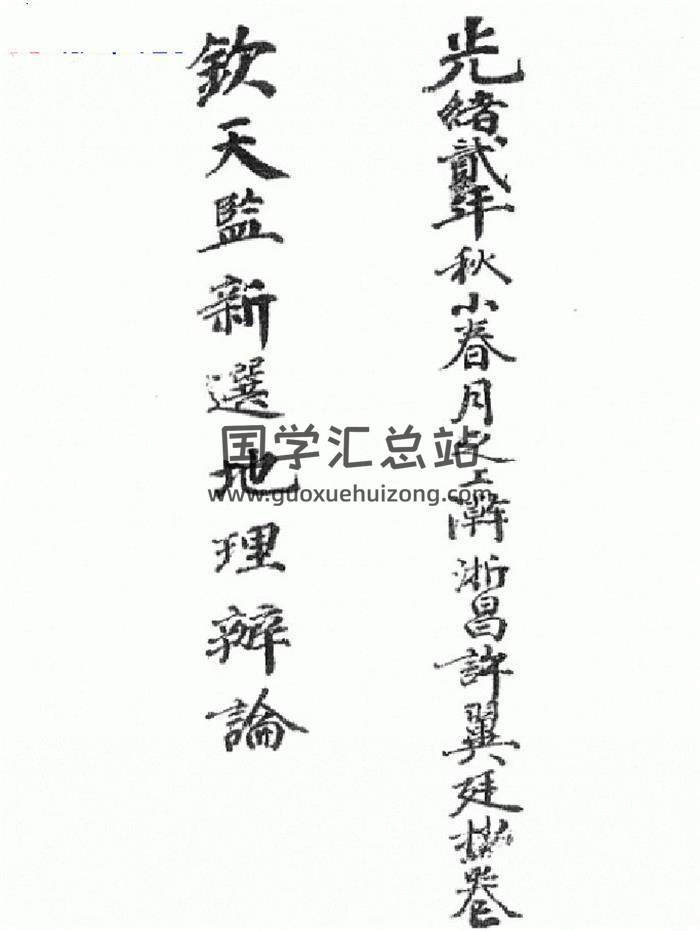 光緒貳年秋小春月 上澣 浙昌許翼廷 卷
欽天監新選地理辦論
国学汇总站
www.guoxuehuizong.com